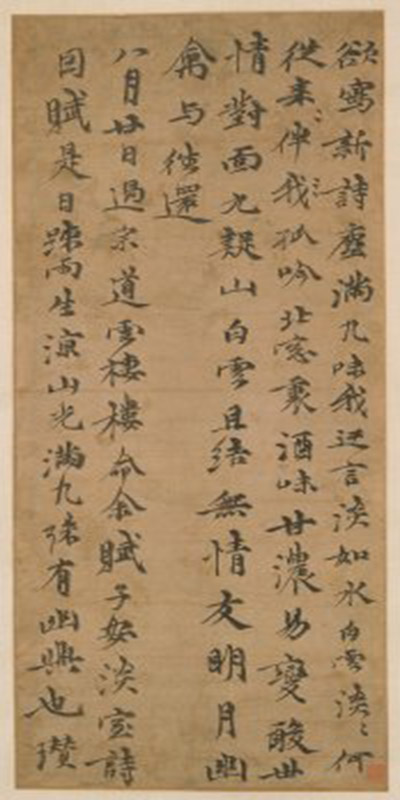 欲寫新詩塵滿几味我迂言淡如水白雲淡〻何
從來伴我孤吟北窓裏酒味甘濃易變酸世
情對面九疑山白雲且結無情友明月幽
禽与往還
八月廿日過宗道雲棲樓命余賦子淡室詩
因賦是日疎雨生涼山光滿几殊有幽興也瓚